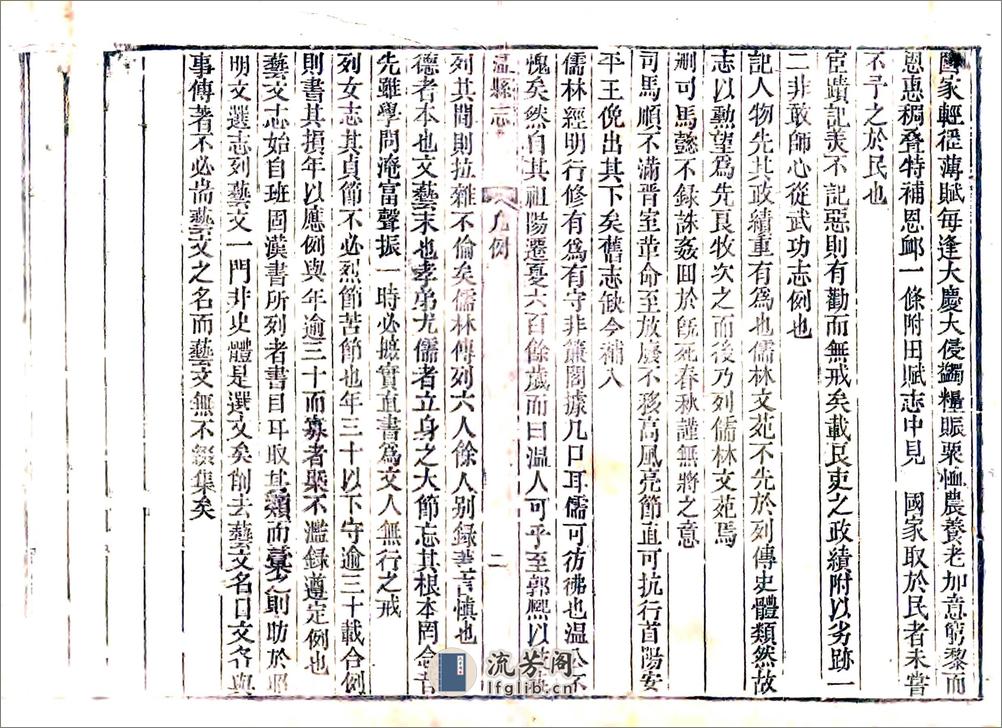 國家輕徭薄賦每逢大慶大侵蠲糧賑粟恤農養老加意窮黎而
恩惠稠叠特補恩卹一條附田賦志中見　國家取於民者未嘗
不予之於民也
宦蹟記美不記惡則有勸而無戒矣載良吏之政績附以劣跡一
二非敢師心從武功志例也
記人物先其政績重有為也儒林文苑不先於列傳史體類然故
志以勲望為先良牧次之而後乃列儒林文苑焉
刪司馬懿不録誅姦囬於既死春秋謹無將之意
司馬順不滿晋室革命至放廢不移高風亮節直可抗行首陽安
平王俛出其下矣舊志缺今補入
儒林經明行修有為有守非簾閣據几口耳儒可彷彿也温公不
愧矣然自其祖陽遷夏六百餘歲而曰温人可乎至郭熙以
温縣志　凡例　二
列其間則拉雜不倫矣儒林傳列六人餘人别録書言慎也
德者本也文藝末也孝弟尤儒者立身之大節忘其根本罔念
先雖學問淹富聲振一時必據實直書為文人無行之戒
列女志其貞節不必烈節苦節也年三十以下守逾三十載合例
則書其損年以應例與年逾三十而寡者槩不濫録遵定例也
藝文志始自班固漢書所列者書目耳取其類而彙之則昉於
明文選志列藝文一門非史體是選文矣削去藝文名目文各與
事傳著不必耑藝文之名而藝文無不綴集矣
流芳阁
lfglib.cn